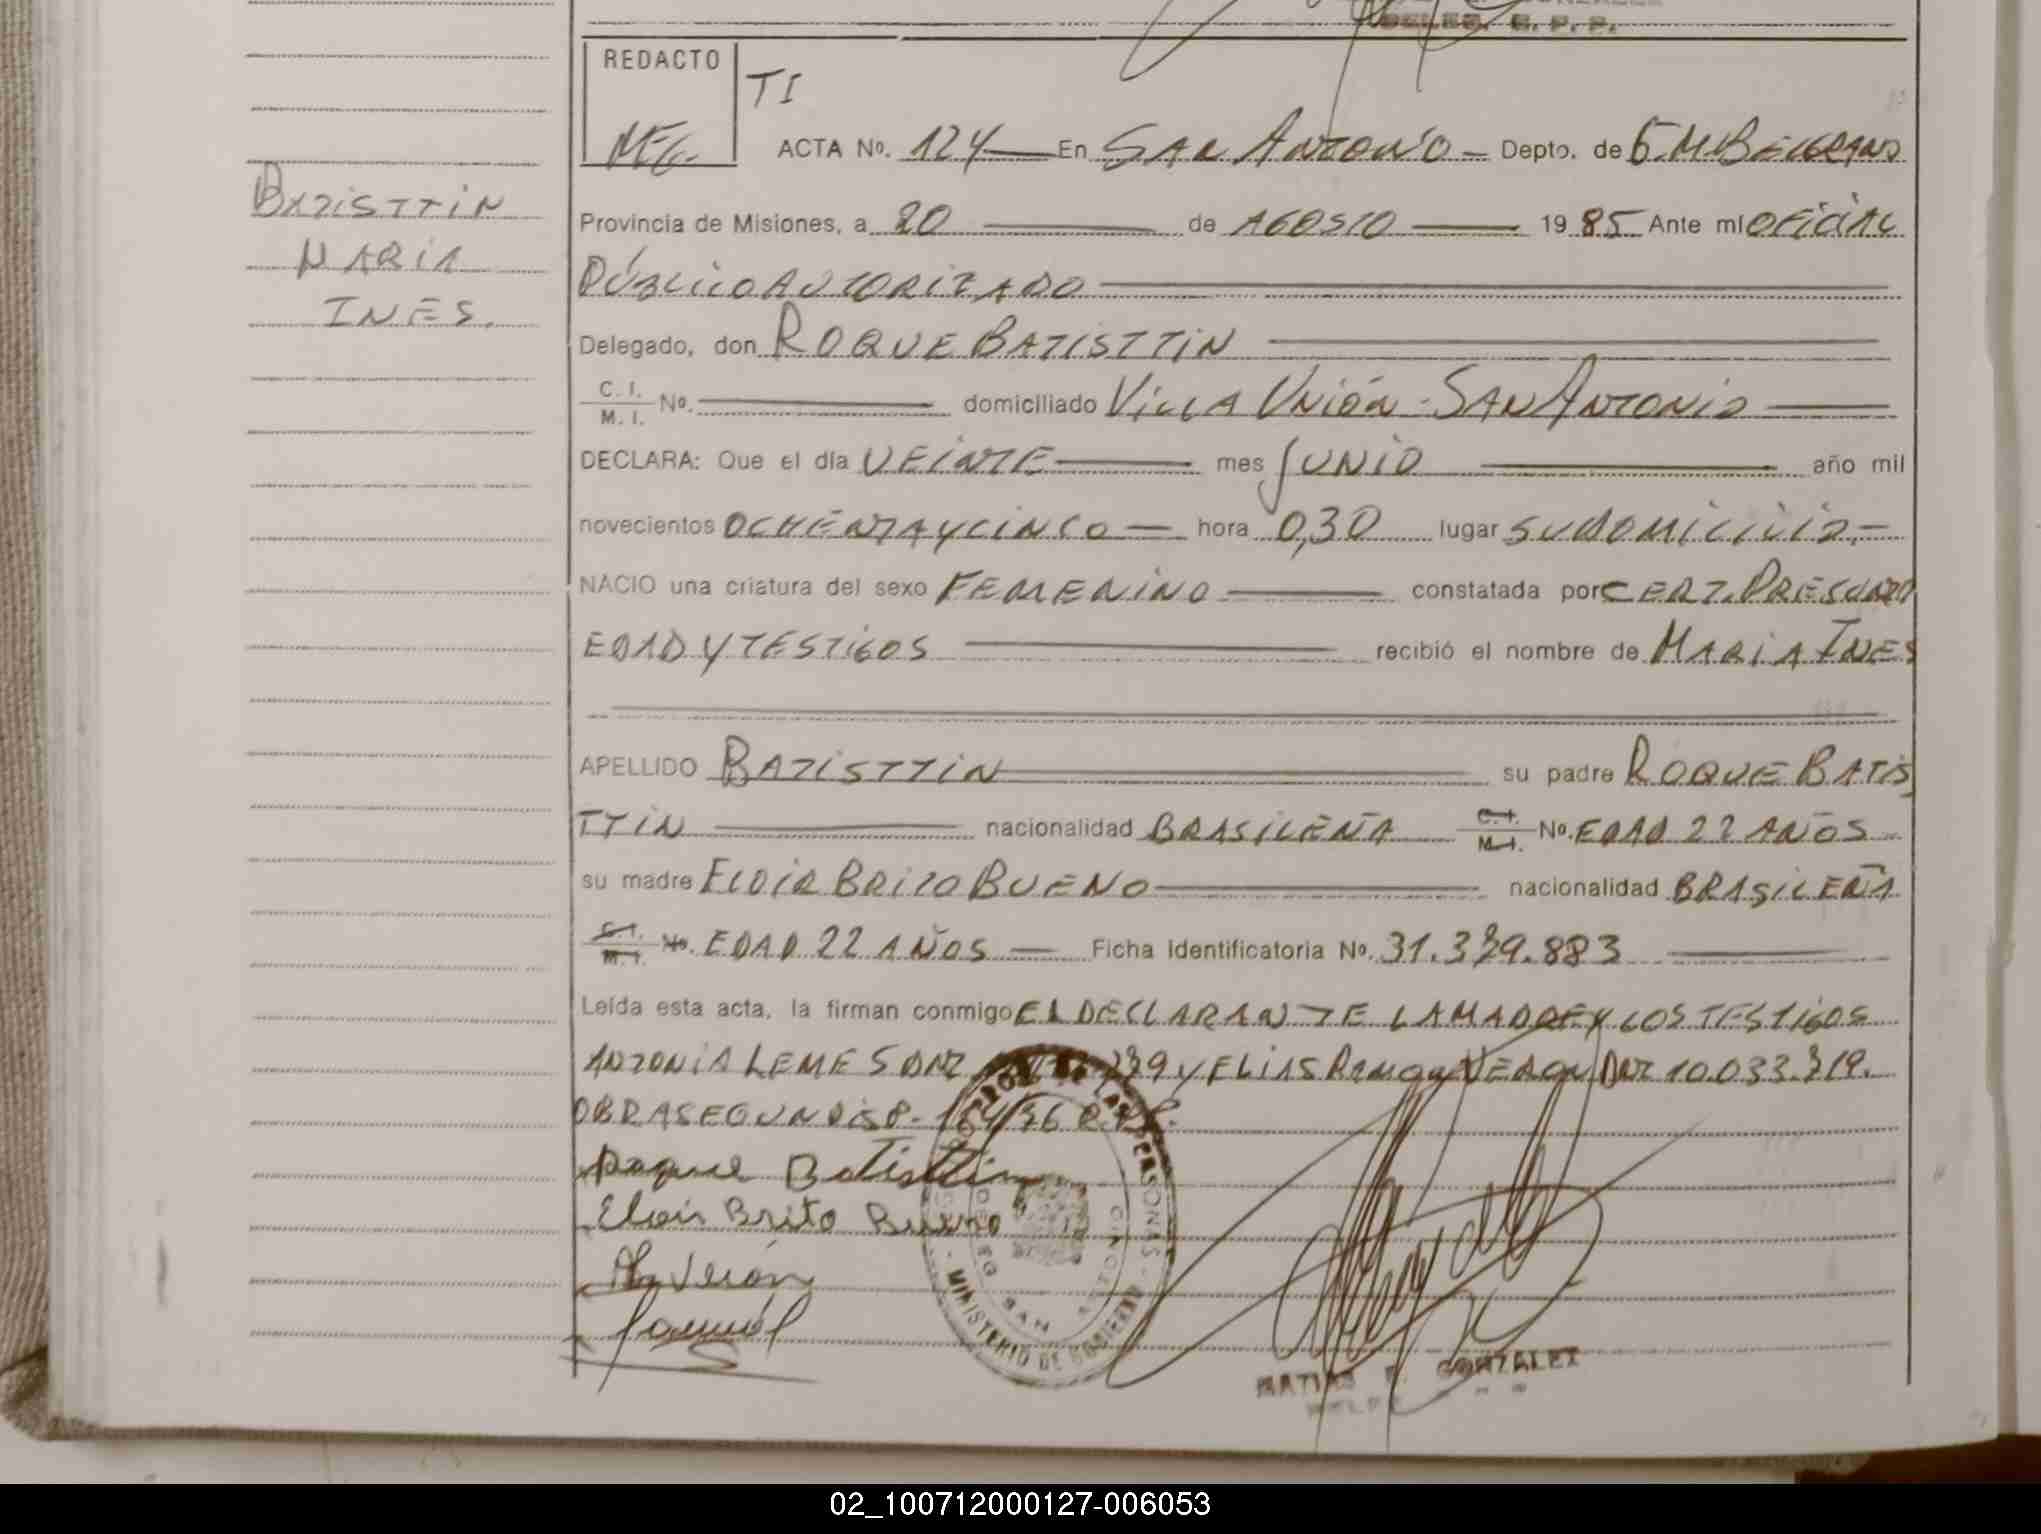 DELEG. E. P. P.
REDACTO
TI
ACTA No. 124 En SAN ANTONIO Depto. de G.M.BELGRANO
BATISTTIN
Provincia de Misiones, a 20 de AGOSTO 1985 Ante mi OFICIAL
MARIA
PÚBLICO AUTORIZADO
INES.
Delegado, don ROQUE BATISTTIN
C. I.
M. I. No. domiciliado VILLA UNIÓN - SAN ANTONIO
DECLARA: Que el día VEINTE mes JUNIO año mil
novecientos OCHENTA Y CINCO hora 0,30 lugar SU DOMICILIO.-
NACIO una criatura del sexo FEMENINO constatada por CERT. PRESUNTA
EDAD Y TESTIGOS recibió el nombre de MARIA INES
APELLIDO BATISTTIN su padre ROQUE BATIS
TTIN nacionalidad BRASILEÑA C.I. M.I. No. EDAD 22 AÑOS
su madre ELOIR BRITO BUENO nacionalidad BRASILEÑA
C.I. M.I. No. EDAD 22 AÑOS Ficha Identificatoria No. 31.339.883
Leída esta acta, la firman conmigo EL DECLARANTE LA MADRE Y LOS TESTIGOS
ANTONIA LEMES DNI Y ELIAS RAMON VERON DNI 10.033.319.
OBRA SEGUN DISP. 164/76 R.P.P.
Roque Batisttin
Eloir Brito Bueno
Verón
DE LAS PERSONAS
DELEG. SAN ANTONIO
MINISTERIO DE GOBIERNO
MATIAS GONZALEZ
02_100712000127-006053